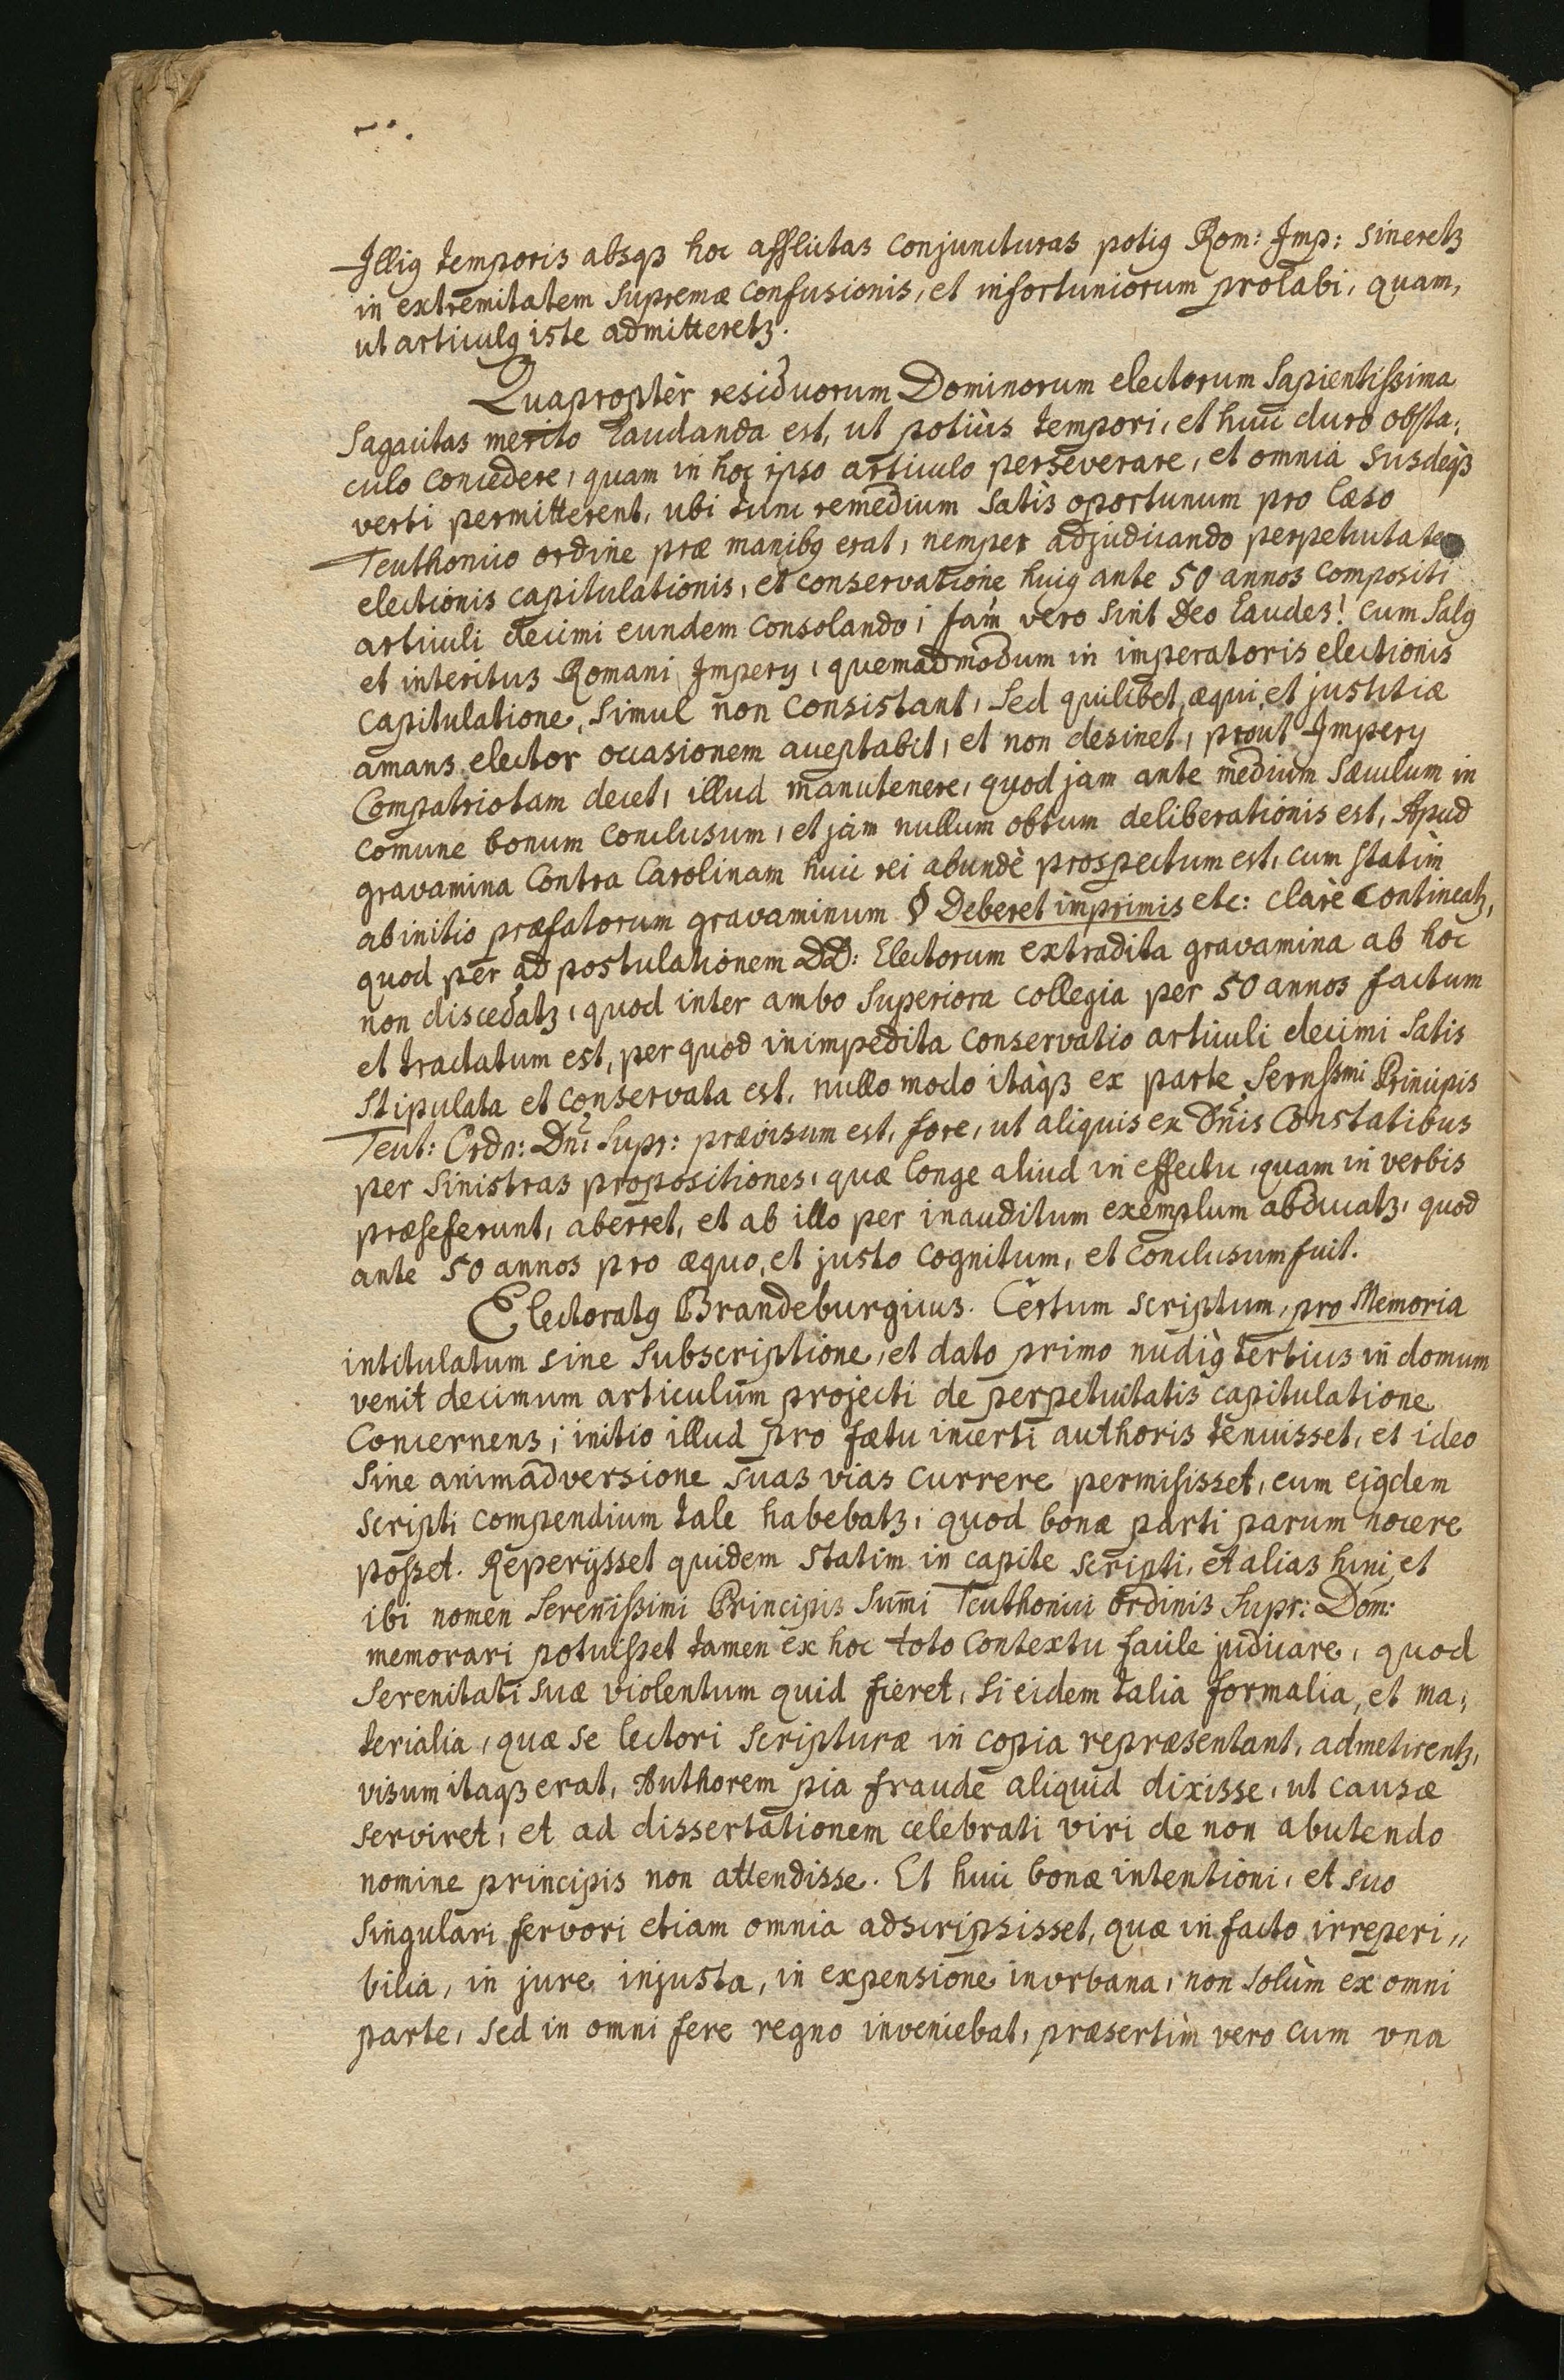 Illiꝰ temporis absqꝫ hoc afflictas conjuncturas potiꝰ Rom: Imp: sineretꝫ
in extremitatem supremæ confusionis, et infortuniorum prolabi, quam,
ut articulꝰ iste admitteretꝫ.
Quaproptèr residuorum Dominorum electorum Sapientissima
Sagacitas merito laudanda est, ut potiùs tempori, et huic duro obsta;
culo concedere, quam in hoc ipso articulo perseverare, et omnia susdeqꝫ
verti permitterent, ubi tunc remedium satìs oportunum pro læso
Teuthonico ordine præ manibꝰ erat, nemper adjudicando perpetuitate
electionis capitulationis, et conservatione huiꝰ ante 50 annos compositi
articuli decimi eundem consolando; jam vero sint Deo laudes! cum salꝰ
et interitus Romani Impery, quemadmodum in imperatoris electionis
capitulatione, simul non consistant, sed quilibet, æqui, et justitiæ
amans elector occasionem acceptabit, et non desinet, prout Impery
Compatriotam decet, illud manutenere, quod jam ante medium sæculum in
comune bonum conclusum, et jam nullum obtum deliberationis est, Apud
gravamina contra Carolinam huic rei abundè prospectum est, cum statìm
ab initio præfatorum gravaminum § Deberet imprimis etc: clarè contineatꝫ,
quod per ad postulationem DD: Electorum extradita gravamina ab hoc
non discedatꝫ, quod inter ambo superiora collegia per 50 annos factum
et tractatum est, per quod inimpedita conservatio articuli decimi satis
stipulata et conservata est, nullo modo itaqꝫ ex parte Sernssmi Principis
Teut: Ordn: Dni Supr: prævisum est, fore, ut aliquis ex Dnis Constatibus
per sinistras propositiones, quæ longe aliud in effectu, quam in verbis
præseferunt, aberret, et ab illo per inauditum exemplum abducatꝫ, quod
ante 50 annos pro æquo, et justo cognitum, et conclusum fuit.
Electoratꝰ Brandeburgicus. Certum scriptum, pro Memoria
intitulatum sine subscriptione, et dato primo nudiꝰ tertius in domum
venit decimum articulum projecti de perpetuitatis capitulatione
concernens; initio illud pro fœtu incerti authoris tenuisset, et ideo
sine animadversione suas vias currere permisisset, cum ejꝰdem
scripti compendium tale habebatꝫ, quod bonæ parti parum nocere
posset. Reperijsset quidem statim in capite scripti, et alias hinc, et
ibi nomen serenissimi Principis Sum̄i Teuthonici ordinis Supr: Dom:
memorari potuisset tamen ex hoc toto contextu facile judicare, quod
Serenitati suæ violentum quid fieret, si eidem talia formalia, et ma;
terialia, quæ se lectori scripturæ in copia repræsentant, admetirentꝫ,
visum itaqꝫ erat, Authorem pia fraude aliquid dixisse, ut causæ
serviret, et ad dissertationem celebrati viri de non abutendo
nomine principis non attendisse. Et huic bonæ intentioni, et suo
singulari fervori etiam omnia adscripsisset, quæ in facto irreperi„
bilia, in jure injusta, in expensione inurbana, non solùm ex omni
parte, sed in omni fere regno inveniebat, præsertìm vero cum una